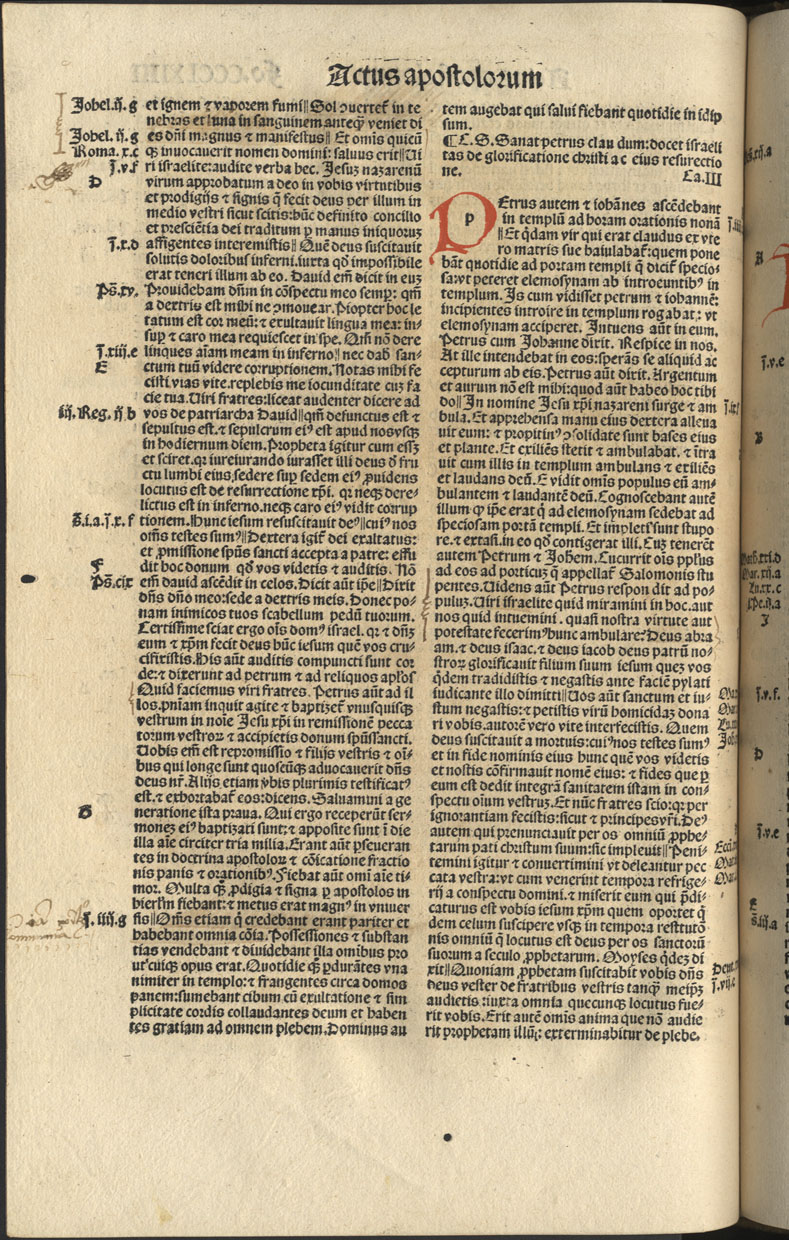 Actus apostolorum
Johel.ij. g
Johel. ij. g
Roma. x. c
j̄. v. f
D
j̄. x. d
Ps̄. xv.
j̄. xiij. e
E
iij. Reg. ij b
S. i. a. j̄. x. f
F
Ps̄. cix
G
j̄. iiij. g
et ignem ⁊ vaporem fumi‖Sol ↄuertet᷑ in te
nebras et luna in sanguinem anteqꝫ veniet di
es dn̄i magnus ⁊ manifestus‖ Et om̄is quicū
qꝫ inuocauerit nomen domini: saluus erit‖Ui
ri israelite: audite verba hec. Jesuꝫ nazarenū
virum approbatum a deo in vobis virtutibus
et prodigijs ⁊ signis q̄ fecit deus per illum in
medio vestri sicut scitis: hūc definito concilio
et presciētia dei traditum ꝑ manus iniquorum
affigentes interemistis‖ Quē deus suscitauit
solutis doloribus inferni. iuxta qd̄ impossibile
erat teneri illum ab eo. Dauid em̄ dicit in euꝫ
Prouidebam dn̄m in cōspectu meo semp̄: qm̄
a dextris est mihi ne ↄmouear. Propter hoc le
tatum est cor meū: ⁊ exultauit lingua mea: in-
sup̄ ⁊ caro mea requiescet in spe. Qm̄ nō dere
linques aīam meam in inferno‖ nec dab̄ san-
ctum tuū videre corruptionem. Notas mihi fe
cisti vias vite. replebis me iocunditate cuꝫ fa
cie tua. Uiri fratres: liceat audenter dicere ad
vos de patriarcha Dauid‖ qm̄ defunctus est ⁊
sepultus est. ⁊ sepulcrum eiꝰ est apud nos vsqꝫ
in hodiernum diem. Propheta igitur cum essꝫ
et sciret. qꝛ iureiurando iurasset illi deus d̄ fru
ctu lumbi eius, sedere sup̄ sedem eiꝰ, ꝓuidens
locutus est de resurrectione xp̄i. qꝛ neqꝫ dere-
lictus est in inferno. neqꝫ caro eiꝰ vidit corrup
tionem. Hunc iesum resuscitauit deꝰ‖cuiꝰ nos
om̄s testes sumꝰ‖Dextera igit᷑ dei exaltatus:
et ꝓmissione spūs sancti accepta a patre: effu
dit hoc donum qd̄ vos videtis ⁊ auditis. Nō
em̄ dauid ascēdit in celos. Dicit aūt ip̄e‖Dixit
dn̄s dn̄o meo: sede a dextris meis. Donec po-
nam inimicos tuos scabellum pedū tuorum.
Certissime sciat ergo oīs domꝰ israel. qꝛ ⁊ dn̄ꝫ
eum ⁊ xp̄m fecit deus hūc iesum quē vos cru-
cifixistis. His aūt auditis compuncti sunt cor
de: ⁊ dixerunt ad petrum ⁊ ad reliquos ap̄los
Quid faciemus viri fratres. Petrus aūt ad il
los. pn̄iam inquit agite ⁊ baptizet᷑ vnusquisqꝫ
vestrum in noīe Jesu xp̄i in remissionē pecca
torum vestroꝝ ⁊ accipietis donum spūssancti.
Uobis em̄ est repromissio ⁊ filijs vestris ⁊ oī-
bus qui longe sunt quoscūqꝫ aduocauerit dn̄s
deus nr̄. Alijs etiam ꝟbis plurimis testificatꝰ
est. ⁊ exhortabat᷑ eos: dicens. Saluamini a ge
neratione ista praua. Qui ergo receperūt ser-
moneꝫ eiꝰ baptizati sunt: ⁊ apposite sunt ī die
illa aīe circiter tria milia. Erant aūt ꝑseueran
tes in doctrina apostoloꝝ ⁊ cōicatione fractio
nis panis ⁊ orationibꝰ. Fiebat aūt omī aīe ti-
mor. Multa qꝫ ꝓdigia ⁊ signa ꝑ apostolos in
hierlm̄ fiebant: ⁊ metus erat magnꝰ in vniuer
sis‖Om̄s etiam q̄ credebant erant pariter et
habebant omnia cōia. Possessiones ⁊ substan
tias vendebant ⁊ diuidebant illa omnibus pro
ut cuiqꝫ opus erat. Quotidie qꝫ ꝑdurātes vna
nimiter in templo: ⁊ frangentes circa domos
panem: sumebant cibum cū exultatione ⁊ sim
plicitate cordis collaudantes deum et haben
tes gratiam ad omnem plebem. Dominus au
tem augebat qui salui fiebant quotidie in idip
sum.
¶C. S. Sanat petrus clau dum: docet israeli
tas de glorificatione christi a c eius resurectio
ne.
Ca. III
PEtrus autem ⁊ iohānes ascēdebant
in templū ad horam orationis nonā
‖Et q̄dam vir qui erat claudus ex vte
ro matris sue baiulabat᷑: quem pone
bāt quotidie ad portam templi q̄ dicit᷑ specio-
sa: vt peteret elemosynam ab introeuntibꝰ in
templum. Is cum vidisset petrum ⁊ iohannē:
incipientes introire in templum rogabat: vt
elemosynam acciperet. Intuens aūt in eum.
Petrus cum Johanne dixit. Respice in nos.
At ille intendebat in eos: sperās se aliquid ac
cepturum ab eis. Petrus aūt dixit. Argentum
et aurum nō est mihi: quod aūt habeo hoc tibi
do‖In nomine Jesu xp̄i nazareni surge ⁊ am
bula. Et apprehensa manu eius dextera alleua
uit eum: ⁊ protinꝰ ↄsolidate sunt bases eius
et plante. Et exiliēs stetit ⁊ ambulabat. ⁊ ītra
uit cum illis in templum ambulans ⁊ exiliēs
et laudans deū. E vidit om̄is populus eū am-
bulantem ⁊ laudantē deū. Cognoscebant autē
illum qꝛ ip̄e erat q̄ ad elemosynam sedebat ad
speciosam portā templi. Et impleti sunt stupo
re. ⁊ extasi. in eo qd̄ contigerat illi. Cuꝫ tenerēt
autem Petrum ⁊ Joh̄em. Cucurrit oīs pp̄lus
ad eos ad porticuꝫ q̄ appellat᷑ Salomonis stu
pentes. Uidens aūt Petrus respon dit ad po-
puluꝫ. Uiri israelite quid miramini in hoc. aut
nos quid intuemini. quasi nostra virtute aut
potestate fecerimꝰ hunc ambulare? Deus abra
am. ⁊ deus isaac. ⁊ deus iacob deus patrū no-
stroꝝ glorificauit filium suum iesum queꝫ vos
q̄dem tradidistis ⁊ negastis ante faciē pylati
iudicante illo dimitti‖Uos aūt sanctum et iu-
stum negastis: ⁊ petistis virū homicidaꝫ dona
ri vobis. autorē vero vite interfecistis. Quem
deus suscitauit a mortuis: cuiꝰ nos testes sumꝰ
et in fide nominis eius hunc quē vos videtis
et nostis cōfirmauit nomē eius: ⁊ fides que ꝑ
eum est dedit integrā sanitatem istam in con-
spectu oīum vestruꝫ. Et nūc fratres scio: qꝛ per
ignorantiam fecistis: sicut ⁊ principes vr̄i. Deꝰ
autem qui prenunciauit per os omniū ꝓphe-
tarum pati christum suum: sic impleuit‖Peni-
temini igitur ⁊ conuertimini vt deleantur pec
cata vestra: vt cum venerint tempora refrige-
rij a conspectu domini. ⁊ miserit eum qui p̄di-
caturus est vobis iesum xp̄m quem oportet q̄
dem celum suscipere vsqꝫ in tempora restitutō
nis omniū q̄ locutus est deus per os sanctorū
suorum a seculo ꝓphetarum. Moyses q̄deꝫ di
xit‖Quoniam ꝓphetam suscitabit vobis dn̄s
deus vester de fratribus vestris tanqꝫ meip̄ꝫ
audietis: iuxta omnia quecunqꝫ locutus fue-
rit vobis. Erit autē om̄is anima que nō audie
rit prophetam illuꝫ: exterminabitur de plebe.